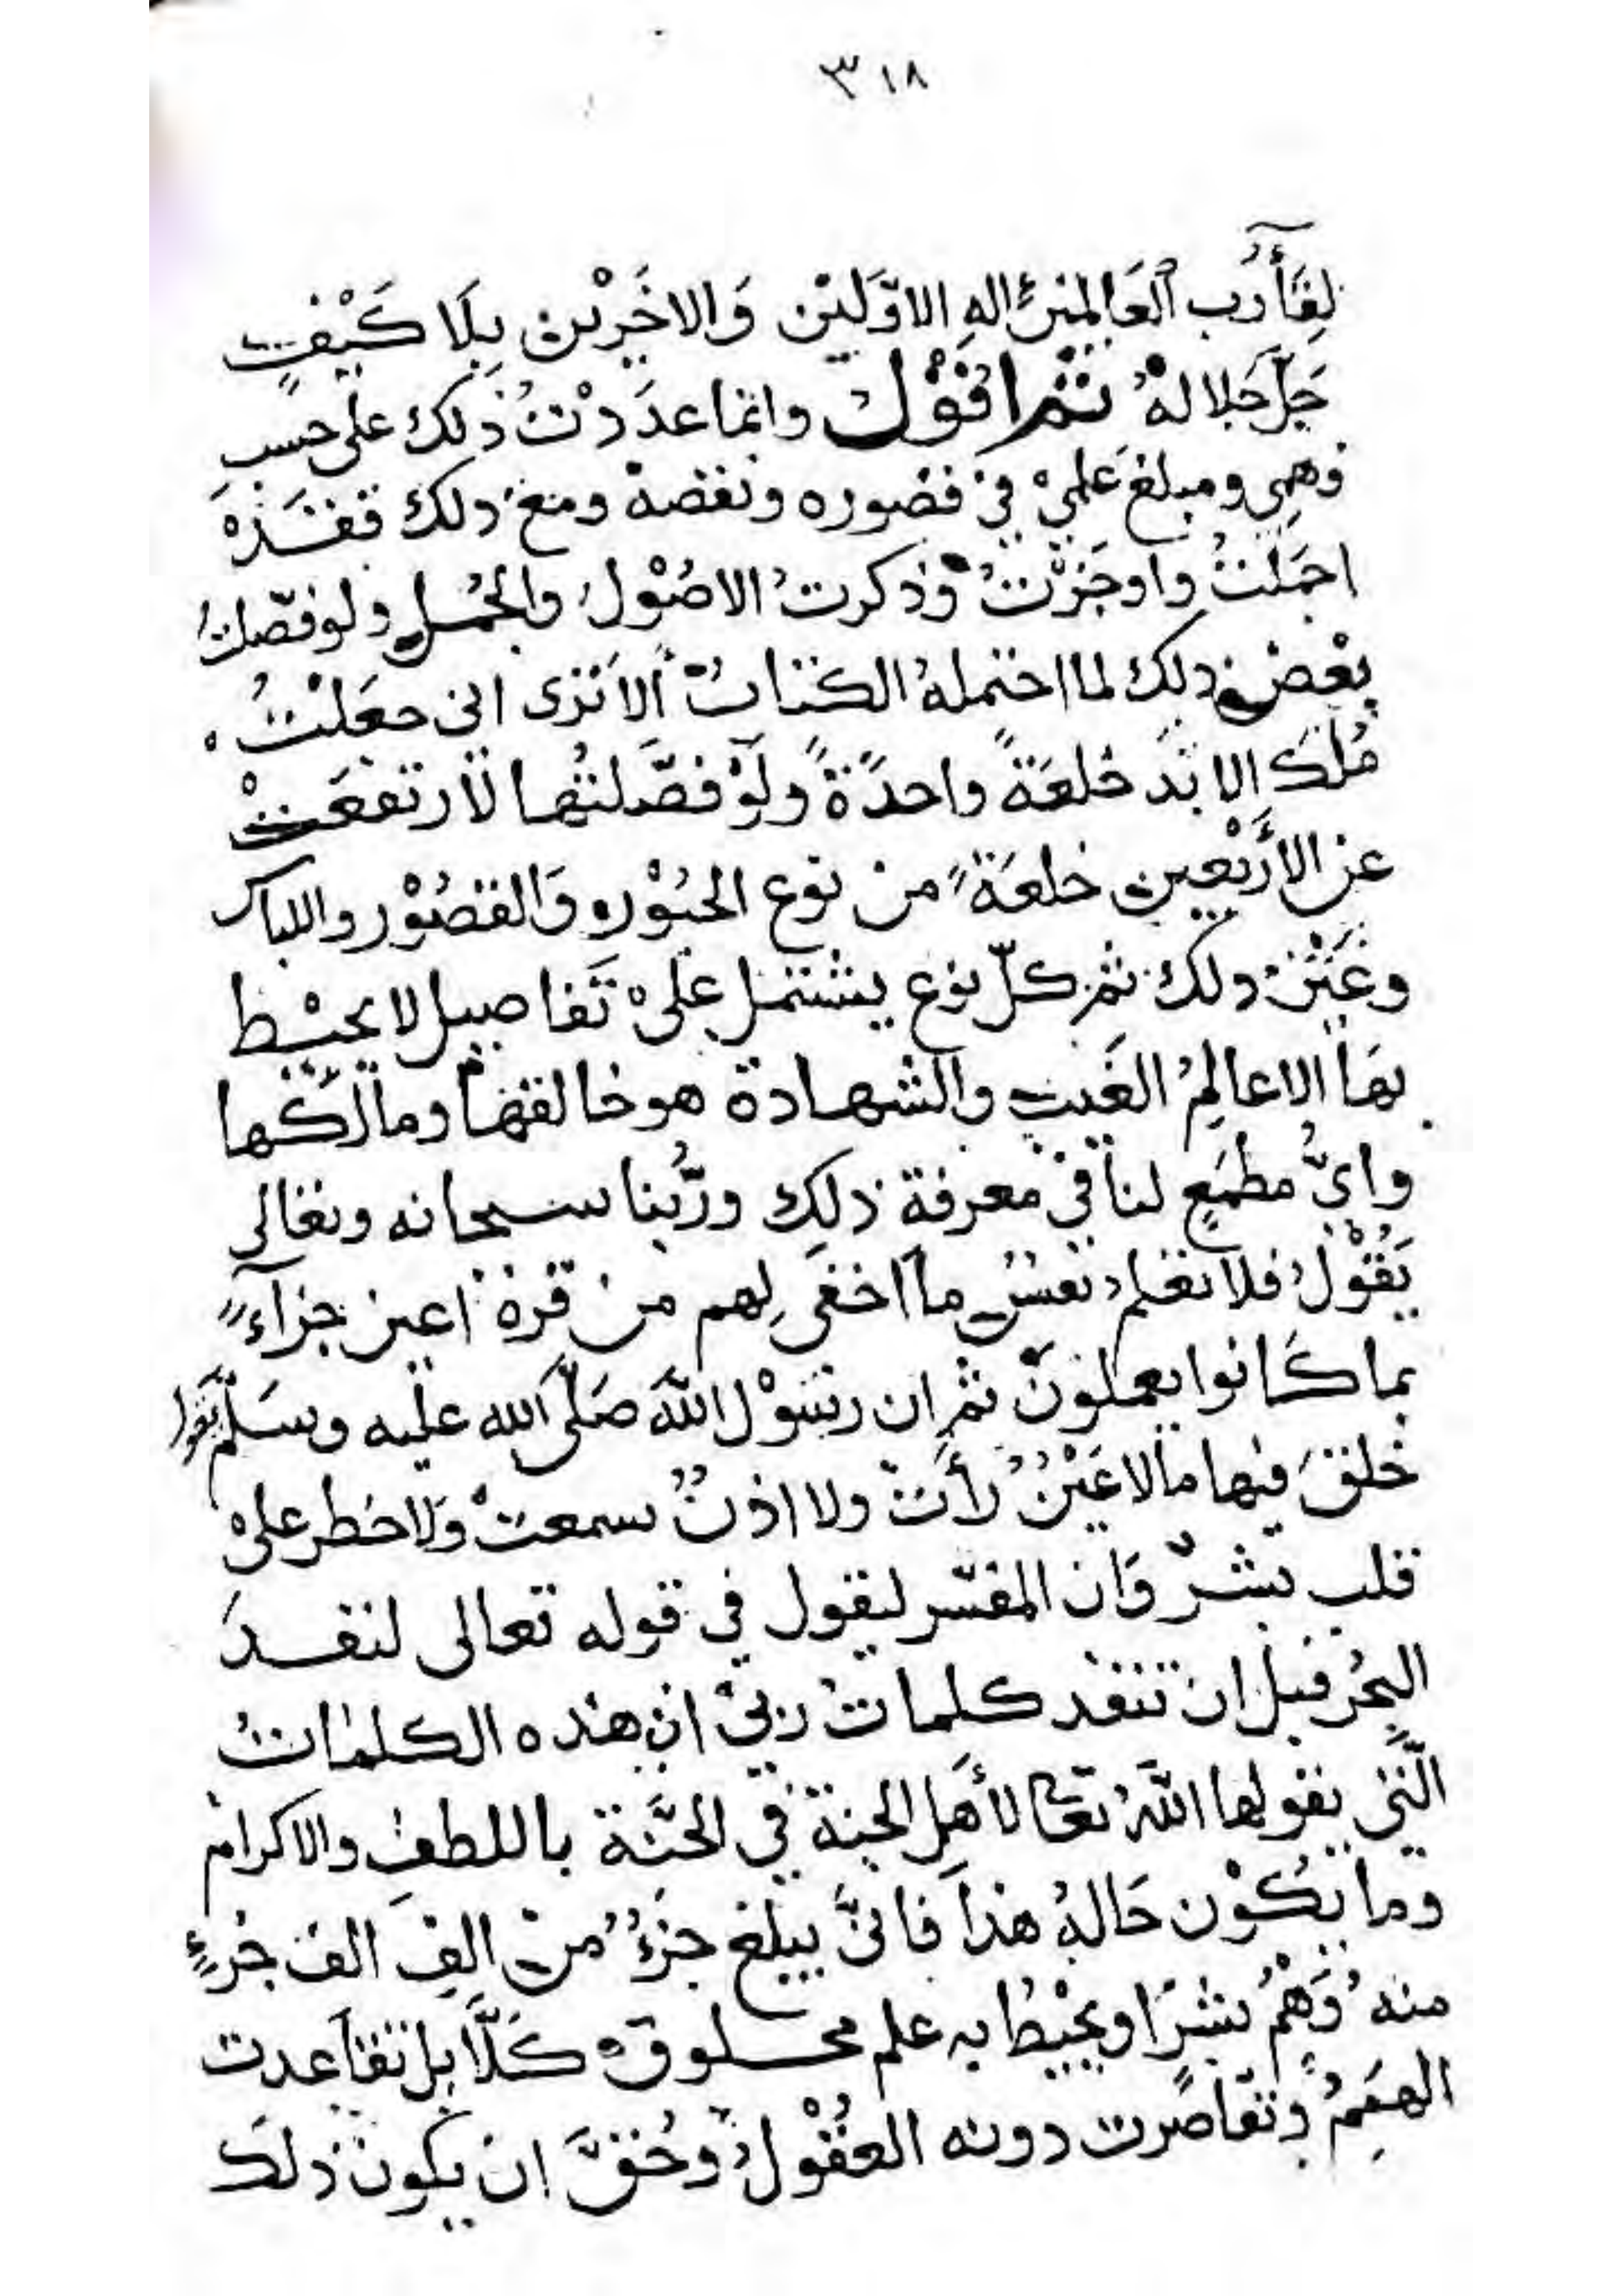 ٣١٨
لِقَآءُ رب العَالمينَ الهِ الاوّلَيْن وَالاخَرِيْن بِلَا كَيْفٍ
جَلّ جَلالهُ ثم اقوْل وانما عدَدْتُ ذلك على حسبِ
فهمِي ومبلغ علميْ فيْ قصوره ونقصهْ ومعَ ذلك فقَدْ
اجمَلْتُ واوجَزْتُ وذكرتُ الاصُوْلَ والجُمل ولو فصّلتُ
بعْضَ ذلِكَ لما احتملهُ الكتابُ ألاَ ترى انى جعَلْتُ
مُلكَ الابَد خلعَةً واحدًةً ولَوْ فصَّلتُها لارتفعَتْ
عن الأرْبَعين خلعَةً من نوع الحُوْر وَالقصُوْر واللباس
وغَيْرَ ذلك ثم كلّ نوع يشتمل علىْ تَفاصيل لا يحيْط
بهَا الا عالِمُ الغَيبِ والشهادة هو خالقهَا ومالكها
وايُّ مطمَعٍ لنا في معرفة ذلِك ورَبُّنا سبحانه وتعَالى
يَقُوْلُ فلا تعْلم نفسٌ ما اخفى لِهم من قرة اعين جزآءً
بما كَانوا يعملونَ ثم ان رسَوْل اللهَ صَلّى الله عليه وسَلّم يقول
خَلقَ فيها ما لا عَيْنٌ رأتْ ولا اذنٌ سمعتْ وَلا خطر علىْ
قلب بشرٍ وَان المفسّر ليقول في قوله تعالى لنفدَ
البحُر قبل ان تنفد كلماتُ ربيْ ان هذه الكلماتُ
الّتي يقولها اللهُ تعالى لأهَل الجنة في الجَنّة باللطفِ والاكرام
وما يَكُوْن حَالهُ هذا فانىّ يبلغ جزءٌ من الفِ الف جُزءٍ
منه وَهْمُ بشرٍ او يحيْطُ به علم مخلوق كَلَّا بل تقاعدت
الهمَمُ وتقاصرت دونه العقُوْلُ وحُقَّ ان يكون ذلكَ